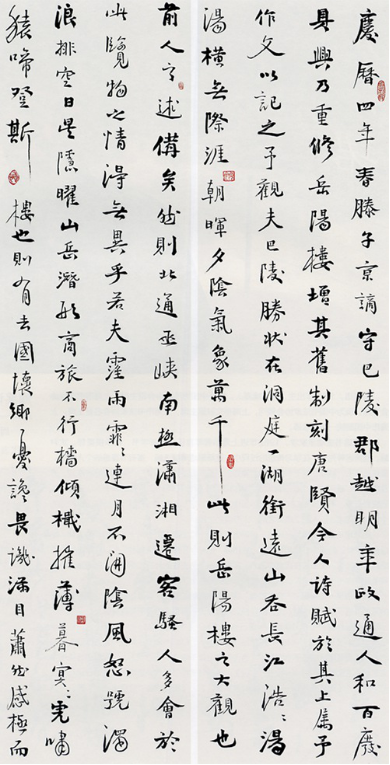 慶曆四年春滕子京謫守巴陵郡越明年政通人和百廢
具興乃重修岳陽樓增其舊制刻唐賢今人詩賦於其上属予
作文以記之予觀夫巴陵勝狀在洞庭一湖銜遠山吞長江浩〻湯
湯橫無際涯朝暉夕陰氣象萬千此則岳陽樓之大觀也
前人之述備矣然則北通巫峽南極瀟湘遷客騷人多會於
此覽物之情得無異乎若夫霪雨霏〻連月不開陰風怒號濁
浪排空日星隱曜山岳潛形商旅不行檣傾檝摧薄暮冥〻虎嘯
猿啼登斯樓也則有去國懷鄉憂讒畏譏滿目蕭然感極而